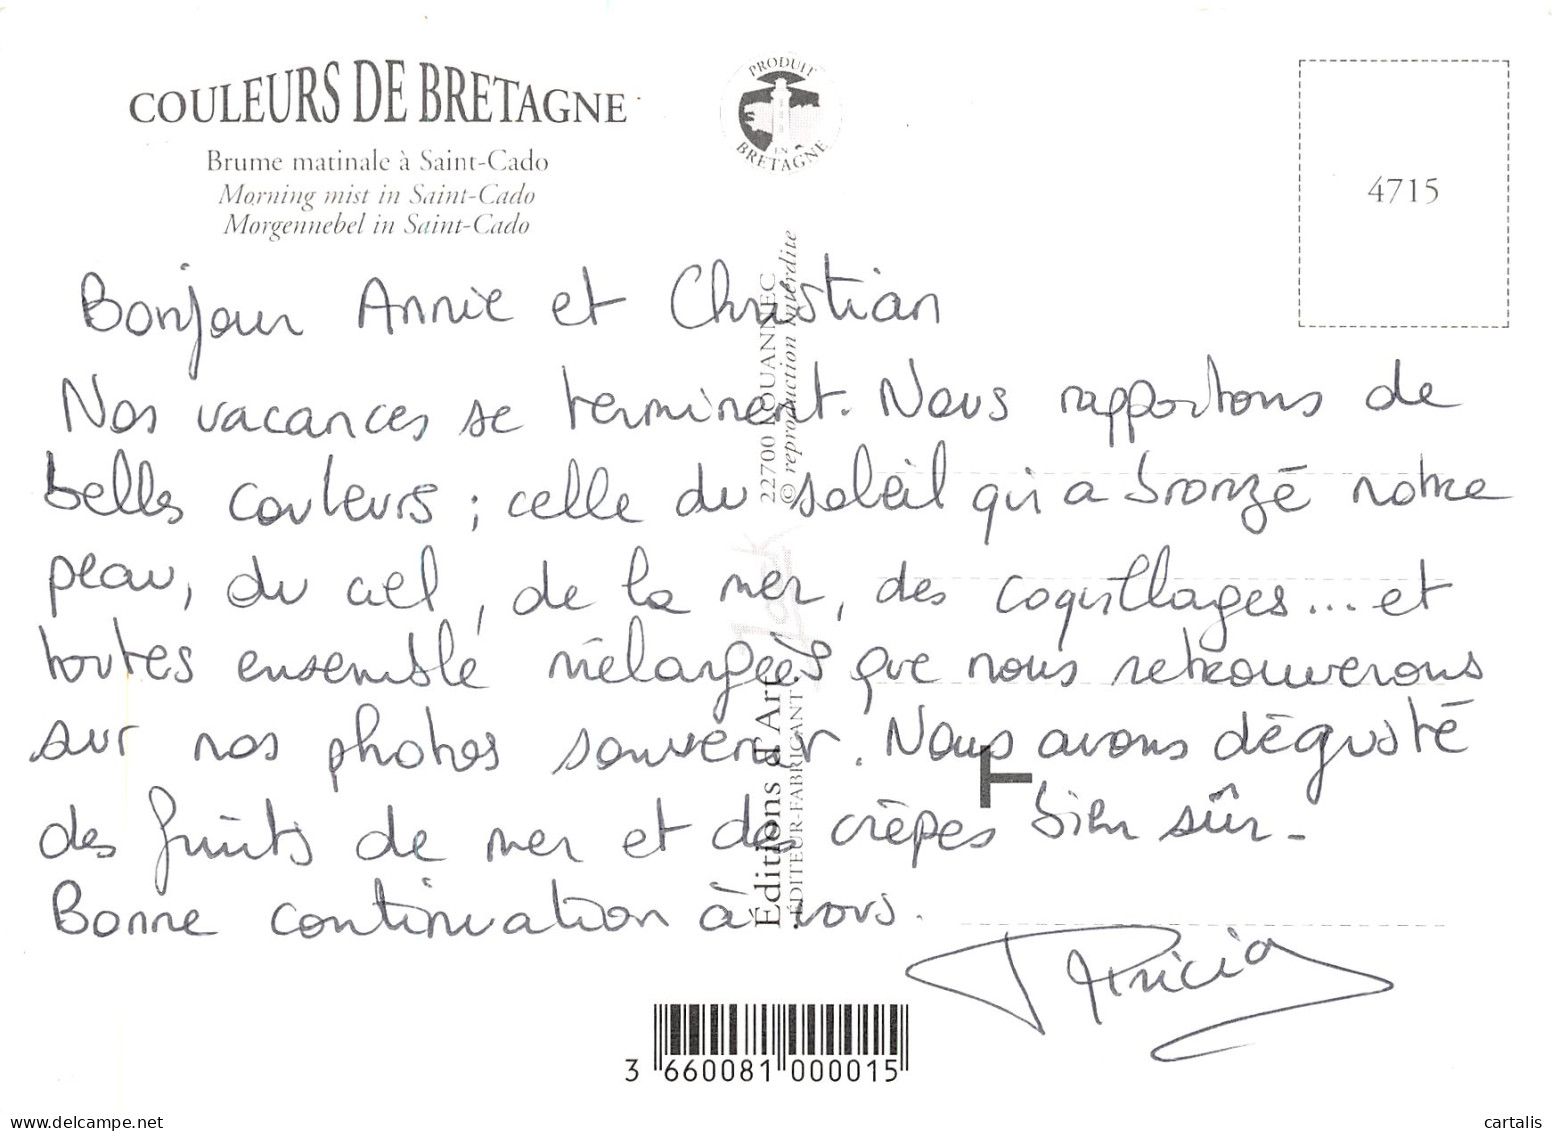 COULEURS DE BRETAGNE
Brume matinale à Saint-Cado
Morning mist in Saint-Cado
Morgennebel in Saint-Cado
PRODUIT
EN
BRETAGNE
4715
Bonjour Annie et Christian
Nos vacances se terminent. Nous rapportons de
belles couleurs ; celle du soleil qui a bronzé notre
peau, du ciel, de la mer, des coquillages... et
toutes ensemble mélangées que nous retrouverons
sur nos photos souvenir. Nous avons dégusté
des fruits de mer et des crêpes bien sûr.
Bonne continuation à vous.
Patricia
Éditions d'Art
ÉDITEUR-FABRICANT
22700 LOUANNEC
© reproduction interdite
3 660081 000015
delcampe.net
cartalis